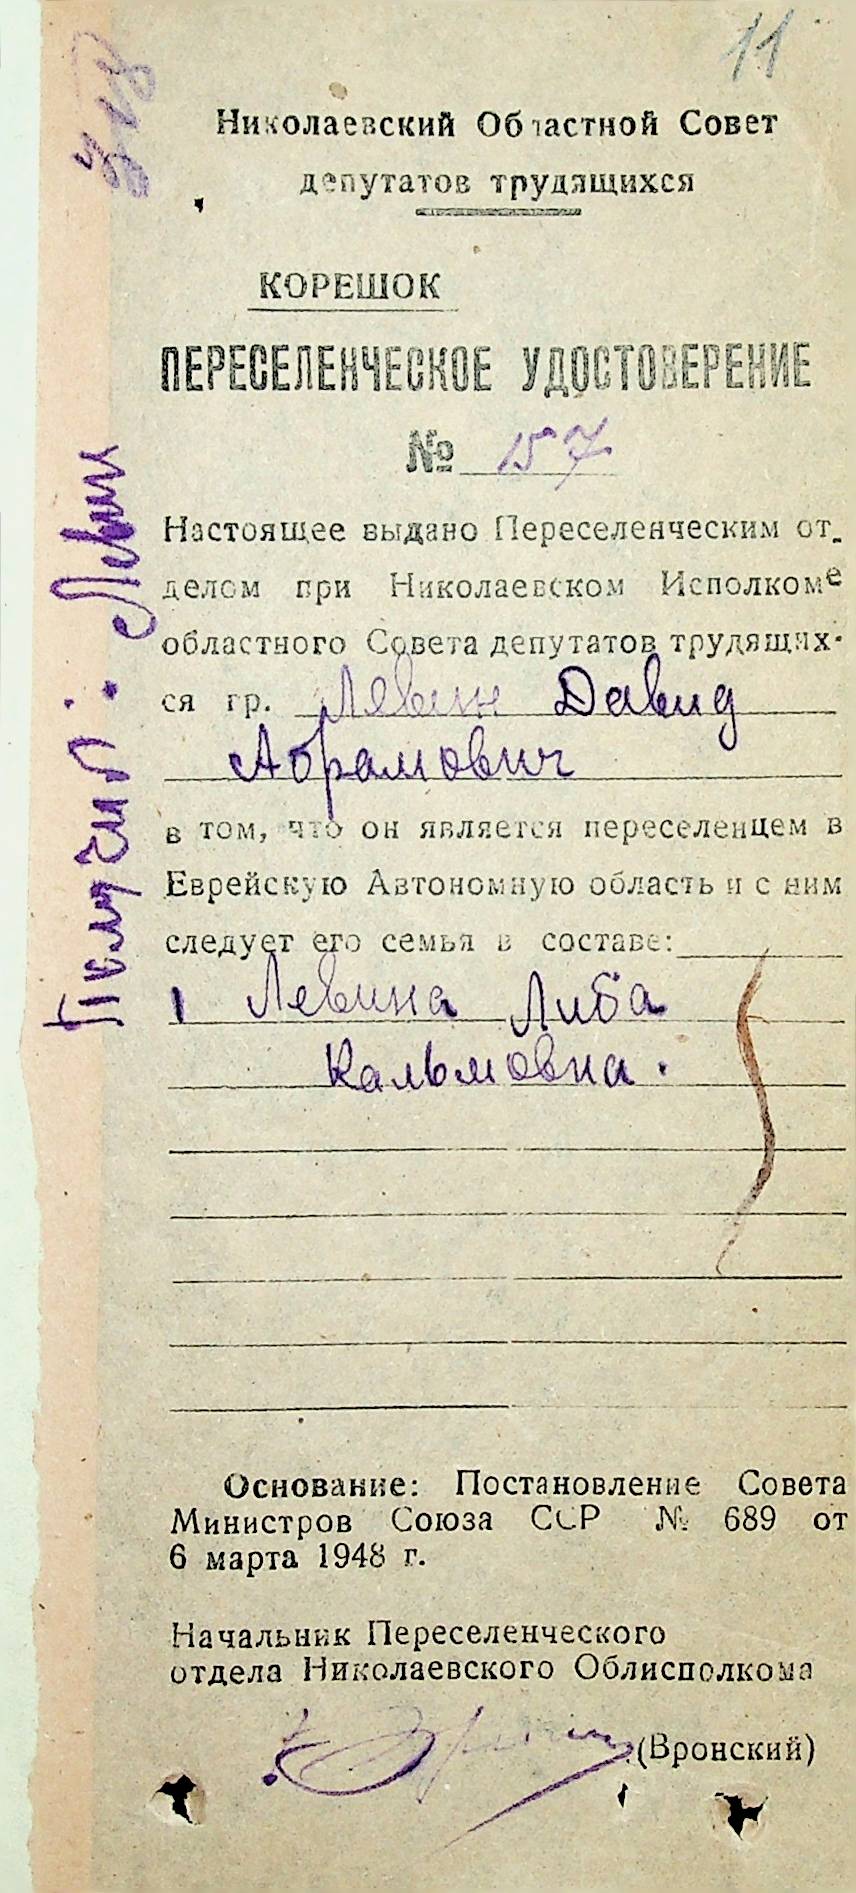 11
Николаевский Областной Совет
депутатов трудящихся
КОРЕШОК
ПЕРЕСЕЛЕНЧЕСКОЕ УДОСТОВЕРЕНИЕ
№ 157
Настоящее выдано Переселенческим от-
делом при Николаевском Исполкоме
областного Совета депутатов трудящих-
ся гр. Левин Давид
Абрамович
в том, что он является переселенцем в
Еврейскую Автономную область и с ним
следует его семья в составе:
1 Левина Либа
Кальмовна.
Основание: Постановление Совета
Министров Союза ССР № 689 от
6 марта 1948 г.
Начальник Переселенческого
отдела Николаевского Облисполкома
(Вронский)
Получил: Левин